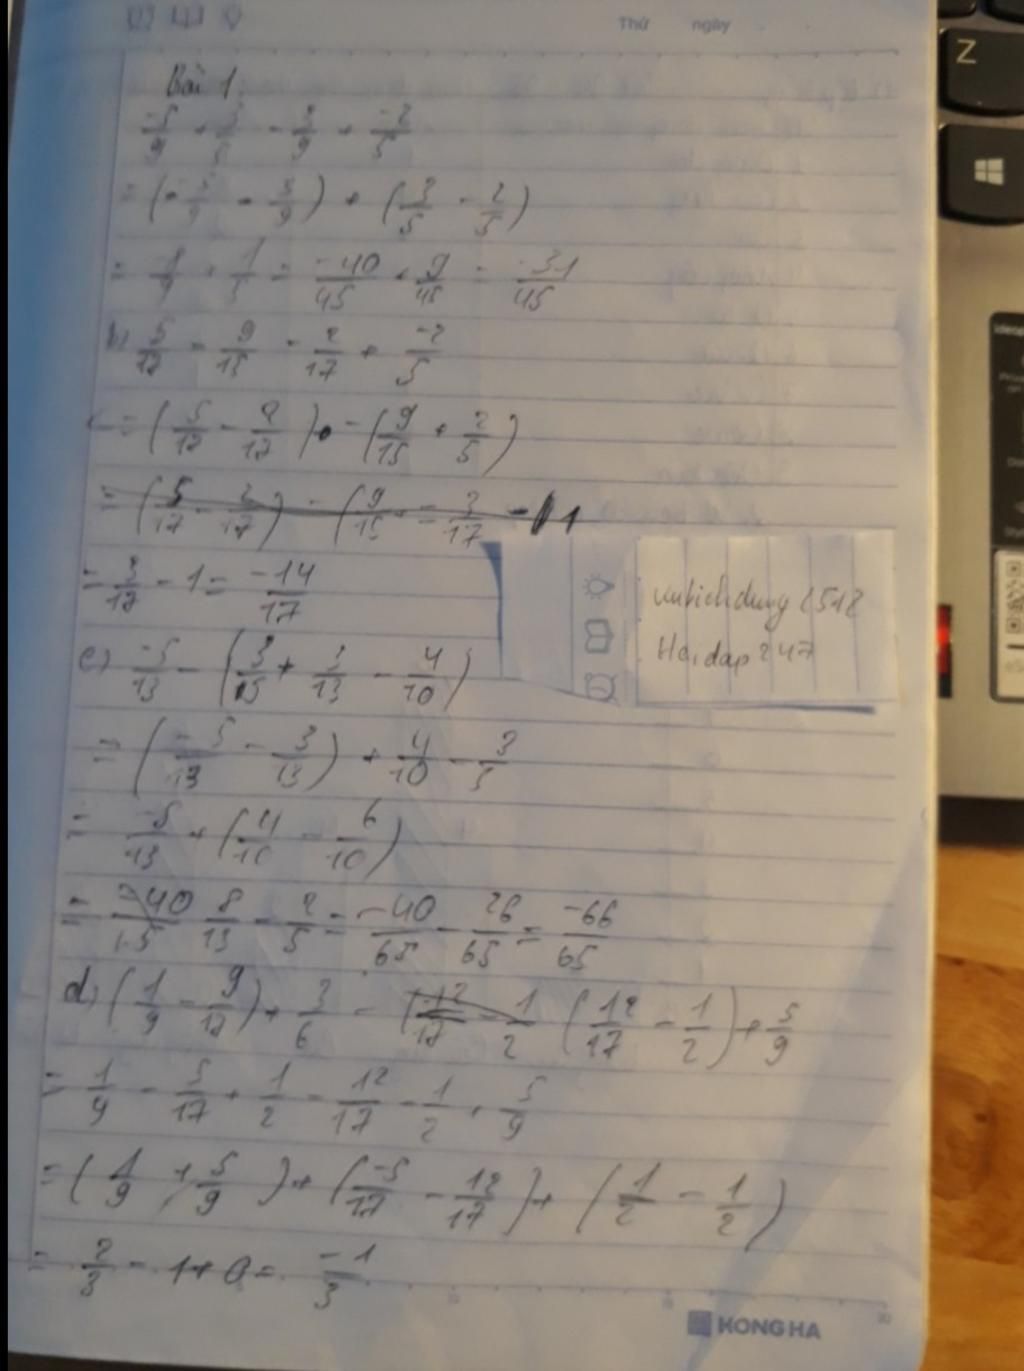 Thứ ngày
Bài 1
-5/9 + 3/5 - 3/9 + -2/5
= (-5/9 - 3/9) + (3/5 - 2/5)
= -8/9 + 1/5 = -40/45 + 9/45 = -31/45
b) 5/17 - 9/15 - 2/17 + -2/5
= (5/17 - 2/17) - (9/15 + 2/5)
= 3/17 - 1 = -14/17
c) -5/13 - (3/5 + 3/13 - 4/10)
= (-5/13 - 3/13) + 4/10 - 3/5
= -5/13 + (4/10 - 6/10)
= 8/13 - 2/5 = -40/65 - 26/65 = -66/65
d) (1/9 - 9/17) + 3/6 - (12/17 - 1/2) + 5/9
= 1/9 - 5/17 + 1/2 - 12/17 - 1/2 + 5/9
= (1/9 + 5/9) + (-5/17 - 12/17) + (1/2 - 1/2)
= 2/3 - 1 + 0 = -1/3
Hoidap247
HONG HA
Z